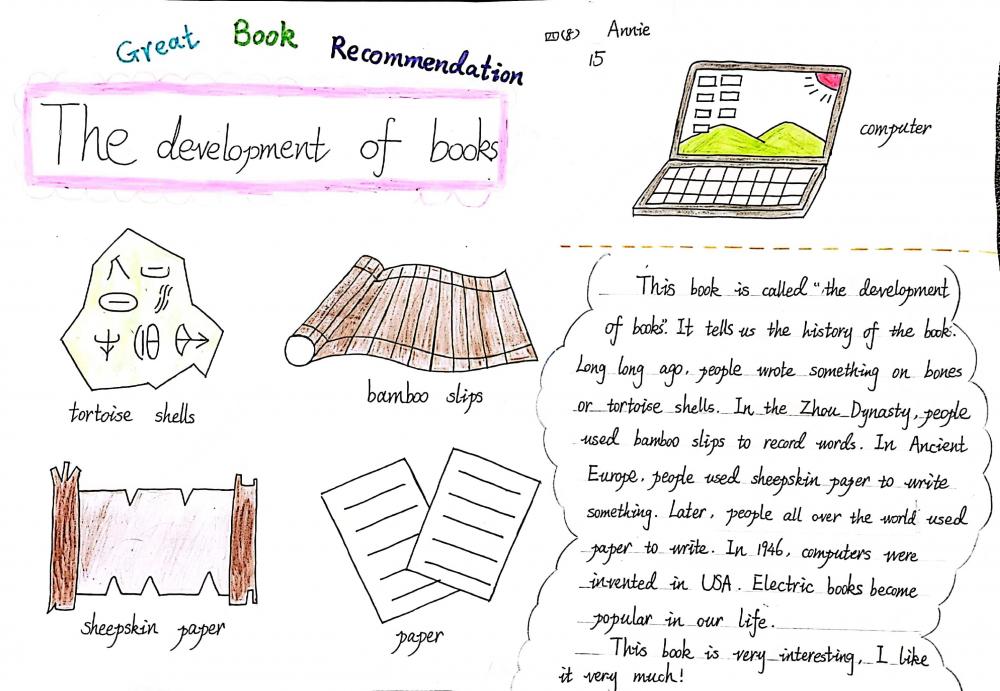 Great Book Recommendation
四(8) Annie
15
The development of books
computer
tortoise shells
bamboo slips
sheepskin paper
paper
This book is called "the development
of books". It tells us the history of the book.
Long long ago, people wrote something on bones
or tortoise shells. In the Zhou Dynasty, people
used bamboo slips to record words. In Ancient
Europe, people used sheepskin paper to write
something. Later, people all over the world used
paper to write. In 1946, computers were
invented in USA. Electric books become
popular in our life.
This book is very interesting, I like
it very much!